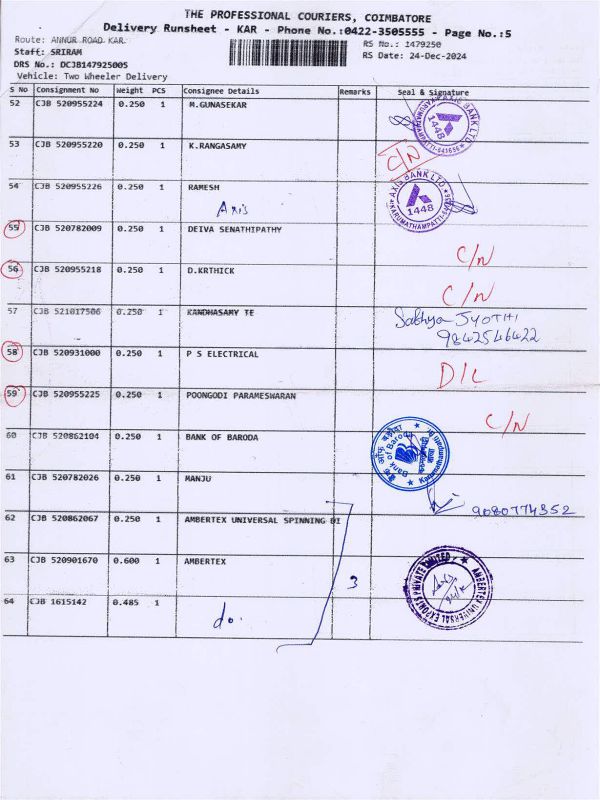 THE PROFESSIONAL COURIERS, COIMBATORE
Delivery Runsheet - KAR - Phone No.:0422-3505555 - Page No.:5
Route: ANNUR ROAD KAR.
RS No.: 1479250
Staff: SRIRAM
RS Date: 24-Dec-2024
DRS No.: DCJB1479250O5
Vehicle: Two Wheeler Delivery
S No Consignment No Weight PCS Consignee Details Remarks Seal & Signature
52 CJB 520955224 0.250 1 M.GUNASEKAR
AXIS BANK LTD
1448
KARUMATHAMPATTI-641659
53 CJB 520955220 0.250 1 K.RANGASAMY
C/N
54 CJB 520955226 0.250 1 RAMESH
Axis
AXIS BANK LTD
1448
55 CJB 520782009 0.250 1 DEIVA SENATHIPATHY
C/N
56 CJB 520955218 0.250 1 D.KRTHICK
C/N
57 CJB 521017506 0.250 1 KANDHASAMY TE
Sathya JYOTHI
9842546422
58 CJB 520931000 0.250 1 P S ELECTRICAL
D/L
59 CJB 520955225 0.250 1 POONGODI PARAMESWARAN
C/N
60 CJB 520862104 0.250 1 BANK OF BARODA
बैंक ऑफ़ बड़ौदा
Bank of Baroda
61 CJB 520782026 0.250 1 MANJU
9080774352
62 CJB 520862067 0.250 1 AMBERTEX UNIVERSAL SPINNING DI
63 CJB 520901670 0.600 1 AMBERTEX
3
AMBERTEX UNIVERSAL EXPORTS PRIVATE LIMITED
64 CJB 1615142 0.485 1
do.